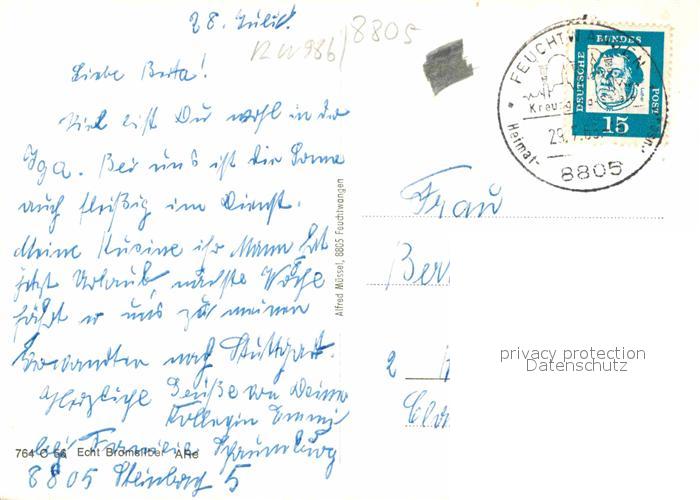 28. Juli.
RW986/8805
Liebe Berta!
Viel bist Du wohl in der
Iga. Bei uns ist die Sonne
auch fleißig im Dienst.
Meine Kusine ihr Mann hat
jetzt Urlaub, nächste Woche
fährt er uns zu meinen
Verwandten nach Stuttgart.
Herzliche Grüße von Deiner
Kollegin Emmi
bei Familie
8805 Steinbach 5
764 C 66 Echt Bromsilber
Alfred Müssel, 8805 Feuchtwangen
FEUCHTWANGEN
Kreuzgang
Heimat-
29.7.65
8805
DEUTSCHE BUNDES POST
15
Frau
Ber
2
privacy protection
Datenschutz